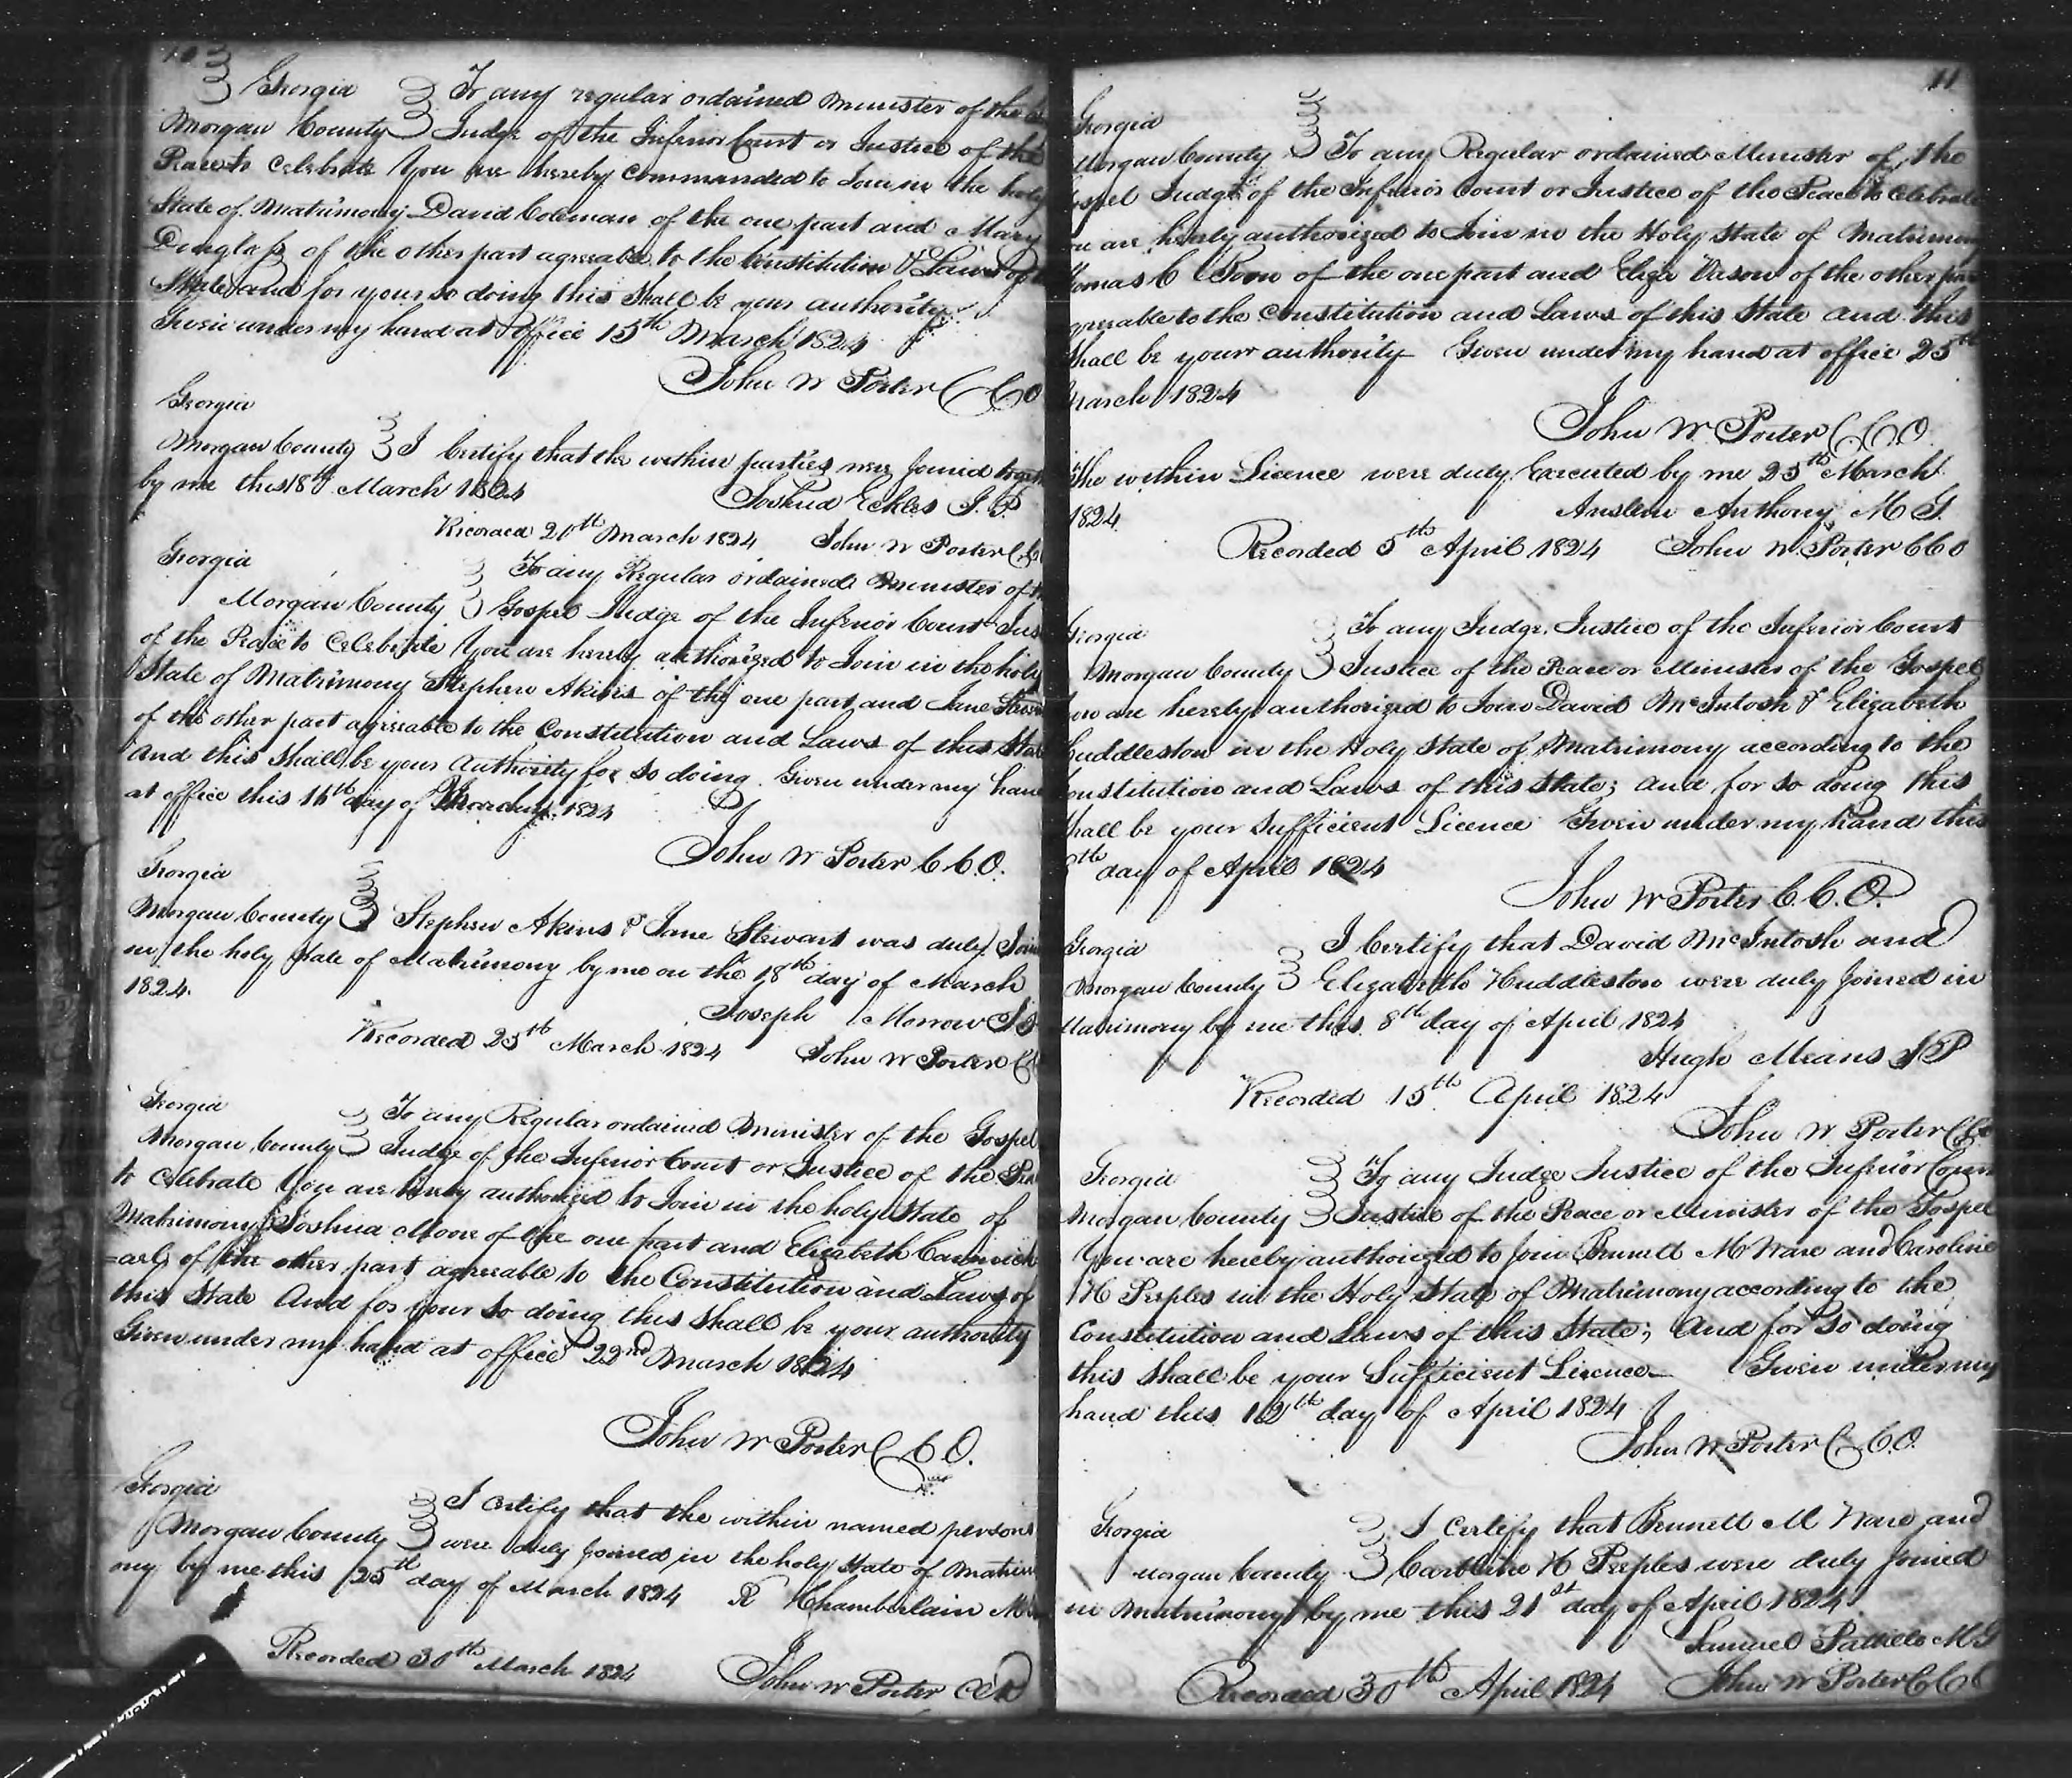 10
Georgia To any regular ordained minister of the
Morgan County Judge of the Inferior Court or Justice of the
Peace to Celebrate You are hereby Commanded to Join in the holy
State of Matrimony David Coleman of the one part and Mary
Douglass of the other part agreeable to the Constitution & Laws of
State and for your so doing this Shall be your authority
Given under my hand at office 15th March 1824
John W Porter C C O
Georgia
Morgan County I Certify that the within parties were Joined
by me this 18th March 1824 Joshua Eckles J. P
Recorded 20th March 1824 John W Porter C
Georgia To any Regular ordained Minister of
Morgan County Gospel Judge of the Inferior Court
of the Peace to Celebrate You are hereby authorized to Join in the holy
State of Matrimony Stephen Akins of the one part and Jane
of the other part agreeable to the Constitution and Laws of this
And this Shall be your Authority for so doing Given under my
at office this 16th day of March 1824
John W Porter C. C. O.
Georgia
Morgan County Stephen Akins & Jane Stewart was duly
in the holy State of Matrimony by me on the 18th day of March
1824.
Joseph Morrow
Recorded 25th March 1824 John W Porter
Georgia To any Regular ordained Minister of the Gospel
Morgan County Judge of the Inferior Court or Justice of the
to Celebrate You are hereby authorized to Join in the holy State of
Matrimony Joshua Moore of the one part and Elizabeth Carmich
=ael of the other part agreeable to the Constitution and Laws of
this State And for your so doing this Shall be your authority
Given under my hand at office 22nd March 1824
John W Porter C. C. O.
Georgia I Certify that the within named persons
Morgan County were duly Joined in the holy State of
my by me this 25th day of March 1824 R Chamberlain
Recorded 30th March 1824 John W Porter
11
Georgia
Morgan County To any Regular ordained Minister of the
Judge of the Inferior Court or Justice of the Peace to Celebrate
are hereby authorized to Join in the Holy State of
C of the one part and Eliza of the other
to the Constitution and Laws of this State and this
Shall be your authority Given under my hand at office 25th
March 1824
John W. Porter C. C. O.
the within Licence were duly Executed by me 25th March
1824. Anslem Anthony M G.
Recorded 5th April 1824 John W. Porter C C O
Georgia To any Judge, Justice of the Inferior Court
Morgan County Justice of the Peace or Minister of the Gospel
You are hereby authorized to Join David McIntosh & Elizabeth
Huddleston in the Holy State of Matrimony according to the
Constitution and Laws of this State; and for so doing this
Shall be your Sufficient Licence Given under my hand this
day of April 1824
John W Porter C. C. O.
Georgia I Certify that David McIntosh and
Morgan County Elizabeth Huddleston were duly Joined in
Matrimony by me this 8th day of April 1824
Hugh Means J P
Recorded 15th April 1824
John W Porter
Georgia To any Judge Justice of the Inferior Court
Morgan County Justice of the Peace or Minister of the Gospel
You are hereby authorized to Join Bennett M Ware and Caroline
H Peeples in the Holy State of Matrimony according to the
Constitution and Laws of this State; And for So doing
this Shall be your Sufficient Licence Given under my
hand this 12th day of April 1824
John W Porter C. C. O.
Georgia I Certify that Bennett M Ware and
Morgan County Caroline H Peeples were duly Joined
in Matrimony by me this 21st day of April 1824
Samuel Pattillo M G
Recorded 30th April 1824 John W Porter C C O